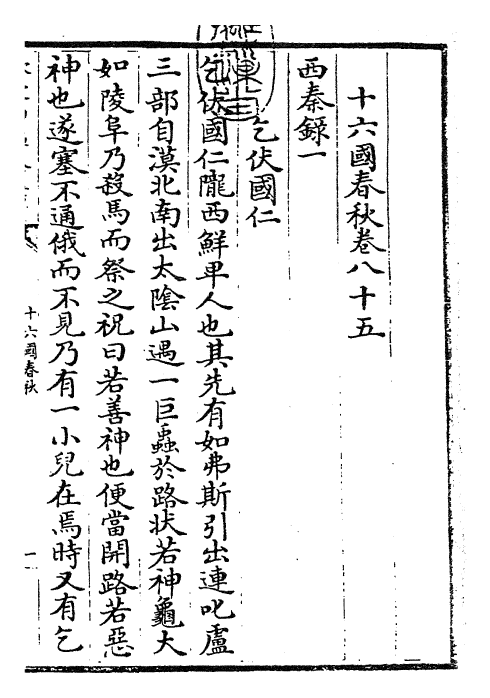 十六國春秋卷八十五
西秦錄一
乞伏國仁
乞伏國仁隴西鮮卑人也其先有如弗斯引出連叱盧
三部自漠北南出太陰山遇一巨蟲於路狀若神龜大
如陵阜乃殺馬而祭之祝曰若善神也便當開路若惡
神也遂塞不通俄而不見乃有一小兒在焉時又有乞
十六國春秋
一